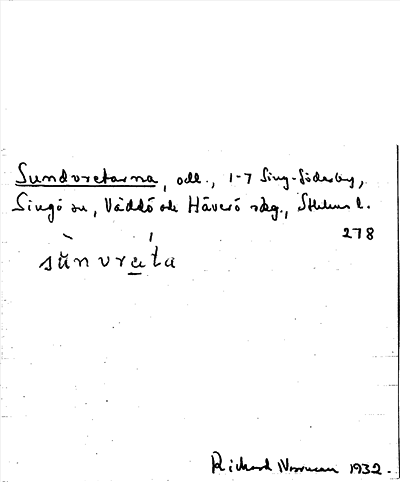 Sundvretarna, odl., 1-7 Sing-Söderby,
Singö sn, Väddö och Häverö skg., Sthlms l.
278
sùnvréta
Richard Norrman 1932.